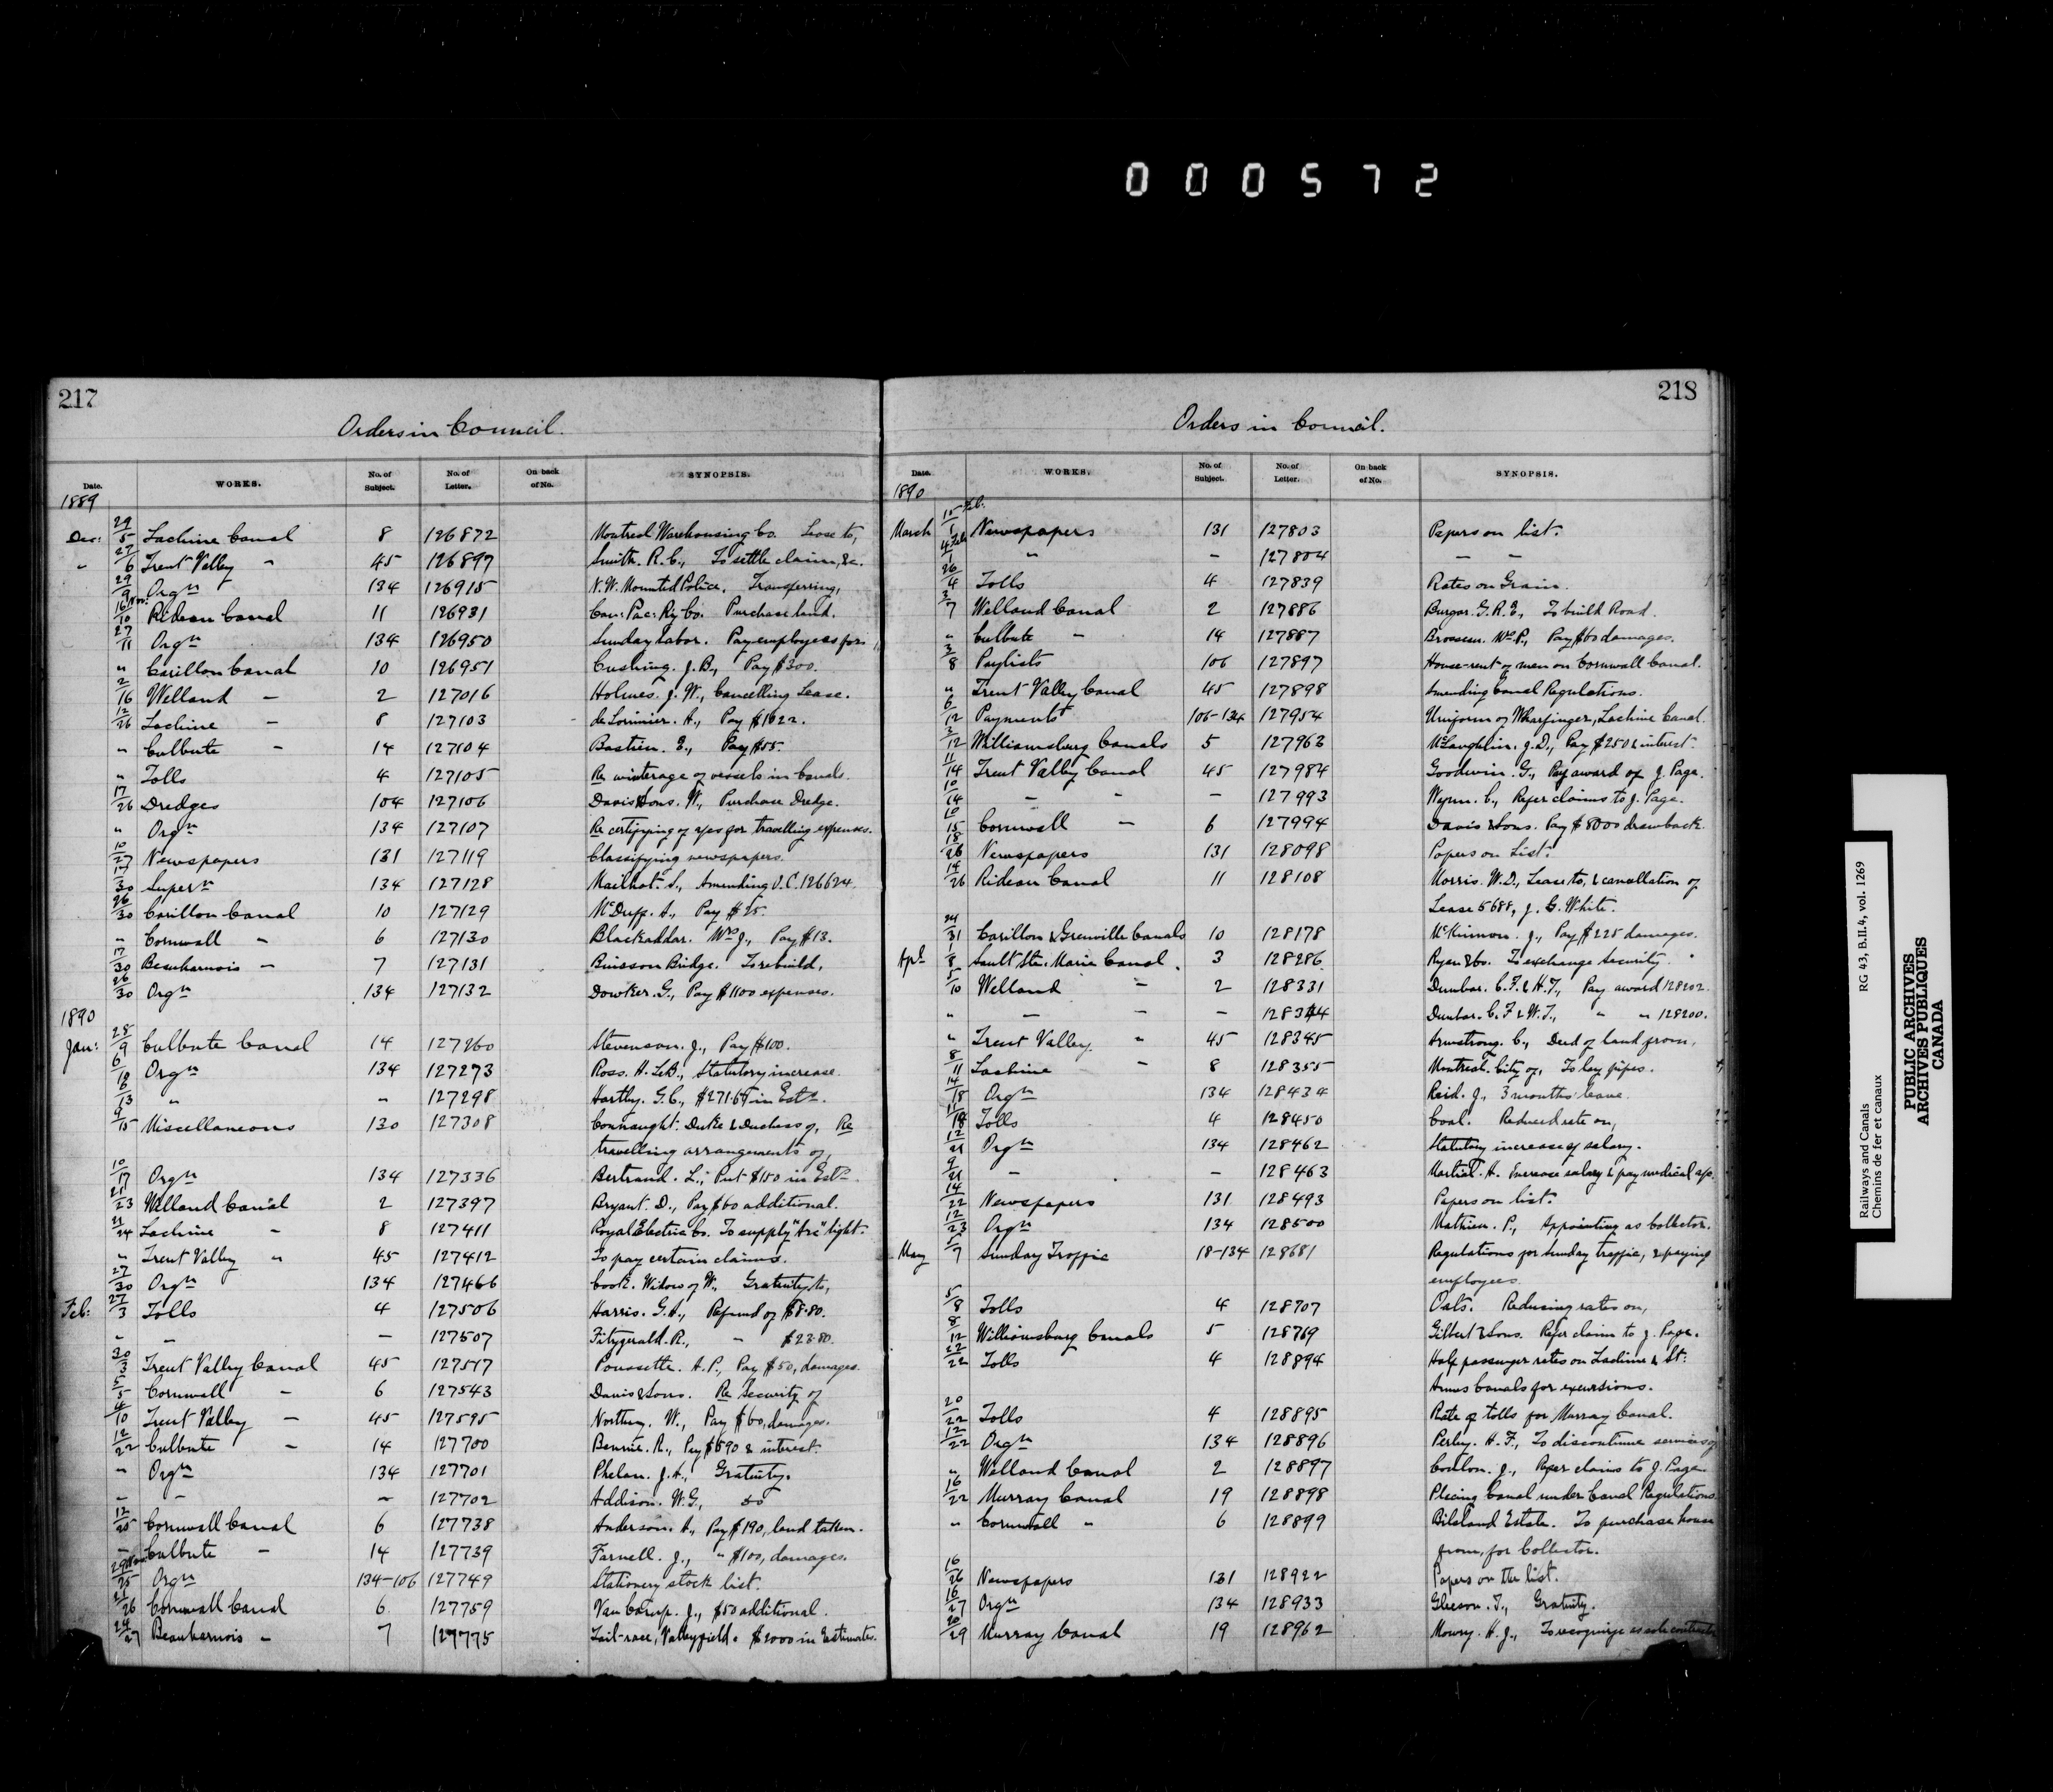 000572
217
Orders in Council.
Date. WORKS. No. of Subject. No. of Letter. On back of No. SYNOPSIS.
1889
Dec: 29/5 Lachine Canal 8 126872 Montreal Warehousing Co. Lease to,
" 27/6 Trent Valley " 45 126897 Smith. R. C., To settle claim, &c.
29/9 Orgn 134 126915 N.W. Mounted Police. Transferring,
16 Nov:/10 Rideau Canal 11 126931 Can: Pac: Ry Co. Purchase land.
27/11 Orgn 134 126950 Sunday Labor. Pay employees for
" Carillon Canal 10 126951 Cushing. J. B., Pay $300.
2/16 Welland - 2 127016 Holmes. J. W., Cancelling Lease.
12/26 Lachine - 8 127103 de Lorimier. A., Pay $1622.
" Culbute - 14 127104 Bastien. E., Pay $55.
" Tolls 4 127105 Re winterage of vessels in Canals.
17/26 Dredges 104 127106 Davis & Sons. W., Purchase Dredge.
" Orgn 134 127107 Re certifying of a/cs for travelling expenses.
10/27 Newspapers 131 127119 Classifying newspapers.
17/30 Supern 134 127128 Mailhot. S., Amending O.C. 126624.
26/30 Carillon Canal 10 127129 McDuff. A., Pay $25.
" Cornwall " 6 127130 Blackaddar. Mrs J., Pay $13.
17/30 Beauharnois - 7 127131 Buisson Bridge. To rebuild,
26/30 Orgn 134 127132 Dowker. G., Pay $1100 expenses.
1890
Jan: 28/9 Culbute Canal 14 127260 Stevenson. J., Pay $100.
6/10 Orgn 134 127273 Ross. H. LeB., Statutory increase.
8/13 " " 127298 Hartley. G. C., $271.65 in Ests.
9/15 Miscellaneous 130 127308 Connaught: Duke & Duchess of, Re
travelling arrangements of,
10/17 Orgn 134 127336 Bertrand. L., Put $150 in Ests
21/23 Welland Canal 2 127397 Bryant. D., Pay $60 additional.
21/24 Lachine - 8 127411 Royal Electric Co. To supply "Arc" light.
" Trent Valley " 45 127412 To pay certain claims.
27/30 Orgn 134 127466 Cook. Widow of W., Gratuity to,
Feb: 27/3 Tolls 4 127506 Harris. G. A., Refund of $8.80.
" - - 127507 Fitzgerald. R., " $23.80.
30/3 Trent Valley Canal 45 127517 Poussette. A. P., Pay $50, damages.
5/5 Cornwall - 6 127543 Davis & Sons. Re Security of
4/10 Trent Valley - 45 127595 Northey. W., Pay $60, damages.
12/22 Culbute - 14 127700 Bennie. R., Pay $690 & interest.
" Orgn 134 127701 Phelan. J. A., Gratuity.
- - - 127702 Addison. W. G., do
12/25 Cornwall Canal 6 127738 Anderson. A., Pay $190, land taken.
- Culbute - 14 127739 Farnell. J., " $100, damages.
29 Nov/25 Orgn 134-106 127749 Stationery stock list.
21/26 Cornwall Canal 6 127759 Van Camp. J., $50 additional.
24/27 Beauharnois - 7 127775 Tail-race, Valleyfield. $2000 in Estimates.
218
Orders in Council.
Date. WORKS. No. of Subject. No. of Letter. On back of No. SYNOPSIS.
1890
March 15 Feb./1 Newspapers 131 127803 Papers on list.
4 Feb/1 " - 127804 - -
26/4 Tolls 4 127839 Rates on Grain.
3/7 Welland Canal 2 127886 Burgar. G. R. E., To build Road.
" Culbute - 14 127887 Brosseau. Wm P., Pay $60 damages.
3/8 Paylists 106 127897 House-rent of men on Cornwall Canal.
" Trent Valley Canal 45 127898 Amending Canal Regulations.
6/12 Payments 106-134 127954 Uniform of Wharfinger, Lachine Canal.
3/12 Williamsburg Canals 5 127963 McLaughlin. J. D., Pay $250 & interest.
11/14 Trent Valley Canal 45 127984 Goodwin. G., Pay award of J. Page.
10/14 - - - 127993 Wynn. C., Refer claims to J. Page.
10/15 Cornwall - 6 127994 Davis & Sons. Pay $8000 drawback.
18/26 Newspapers 131 128098 Papers on List.
14/26 Rideau Canal 11 128108 Morris. W. D., Lease to, & cancellation of
Lease 5688, J. C. White.
24/31 Carillon & Grenville Canals 10 128178 McKinnon. J., Pay $225 damages.
Apl 1/8 Sault Ste. Marie Canal. 3 128286 Ryan & Co. To exchange Security.
5/10 Welland - 2 128331 Dunbar. C. F. & H. T., Pay award 128202.
" - - - 128344 Dunbar. C. F & W. T., " " 128200.
" Trent Valley " 45 128345 Armstrong. C., Deed of land from,
8/11 Lachine - 8 128355 Montreal. City of, To lay pipes.
14/18 Orgn 134 128434 Reid. J., 3 months' leave.
11/18 Tolls 4 128450 Coal. Reduced rate on,
12/21 Orgn 134 128462 Statutory increase of salary.
9/21 - - 128463 Martial. A. Increase salary & pay medical a/c.
14/22 Newspapers 131 128493 Papers on list.
12/23 Orgn 134 128500 Mathieu. P., Appointing as Collector.
May 5/7 Sunday Traffic 18-134 128681 Regulations for Sunday traffic, & paying
employees.
5/8 Tolls 4 128707 Oats. Reducing rates on,
8/12 Williamsburg Canals 5 128769 Gilbert & Sons. Refer claim to J. Page.
22/22 Tolls 4 128894 Half passenger rates on Lachine & St:
Annes Canals for excursions.
20/22 Tolls 4 128895 Rate of tolls for Murray Canal.
12/22 Orgn 134 128896 Perley. H. F., To discontinue services of
" Welland Canal 2 128897 Conlon. J., Refer claims to J. Page
16/22 Murray Canal 19 128898 Placing Canal under Canal Regulations.
" Cornwall " 6 128899 Bilsland Estate. To purchase house
from, for Collector.
16/26 Newspapers 131 128922 Papers on the list.
16/27 Orgn 134 128933 Gleeson. T., Gratuity.
20/29 Murray Canal 19 128962 Mowry. H. J., To recognize as sole contractor
Railways and Canals RG 43, B.II.4, vol. 1269
Chemins de fer et canaux
PUBLIC ARCHIVES
ARCHIVES PUBLIQUES
CANADA